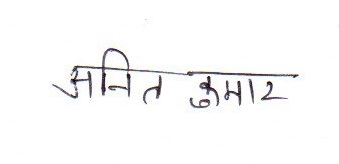 अनित कुमार